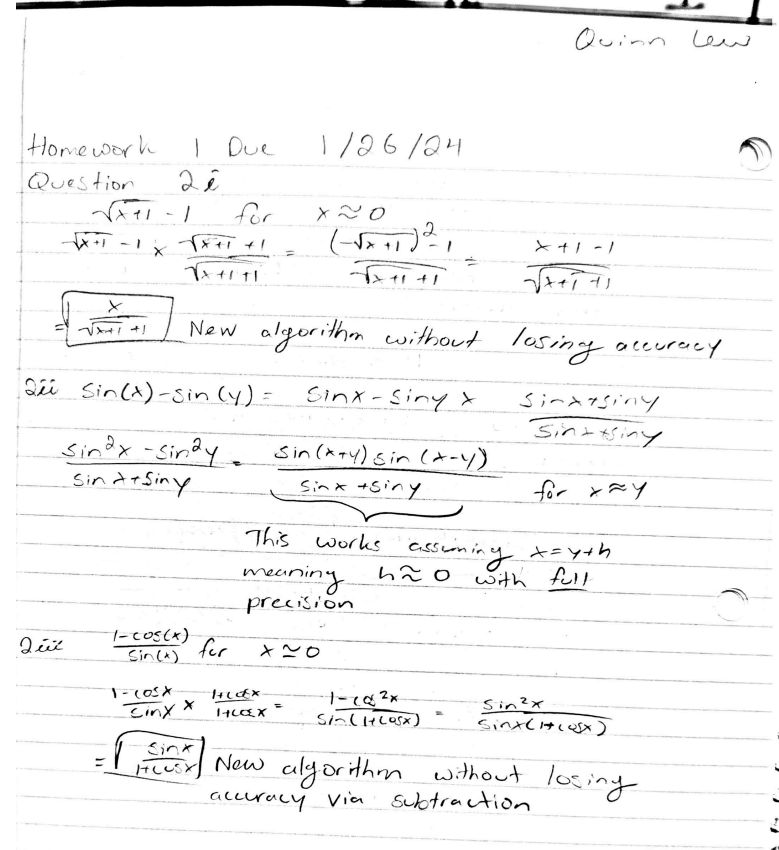 Quinn Lew
Homework 1 Due 1/26/24
Question 2i
√(x+1) - 1 for x≈0
√(x+1) - 1 × (√(x+1) +1)/(√(x+1) +1) = ((√(x+1))² - 1)/(√(x+1) +1) = (x+1-1)/(√(x+1) +1)
= x/(√(x+1) +1) New algorithm without losing accuracy
2ii Sin(x)-sin(y) = Sinx-Siny × (Sinx+siny)/(Sinx+siny)
(sin²x - sin²y)/(sinx+siny) = (sin(x+y) sin(x-y))/(sinx+siny) for x≈y
This works assuming x=y+h
meaning h≈0 with full
precision
2iii (1-cos(x))/(sin(x)) for x≃0
(1-cosx)/(sinx) × (1+cosx)/(1+cosx) = (1-cos²x)/(sin(1+cosx)) = (sin²x)/(sinx(1+cosx))
= (sinx)/(1+cosx) New algorithm without losing
accuracy via subtraction